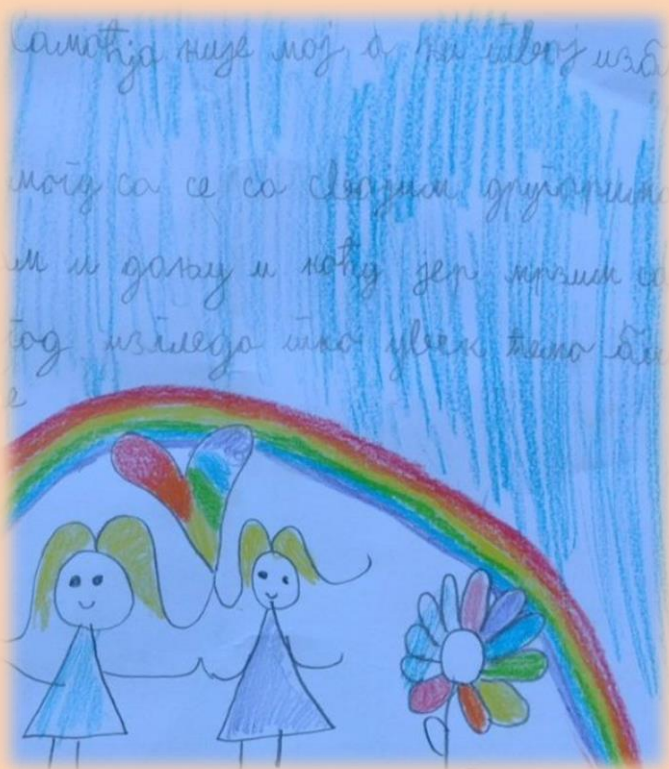 Самоћја није мој а ни твој изб
могу са се са својим другарим
м и дању и ноћу јер мрзим с
год изгледа увек ћемо би
е